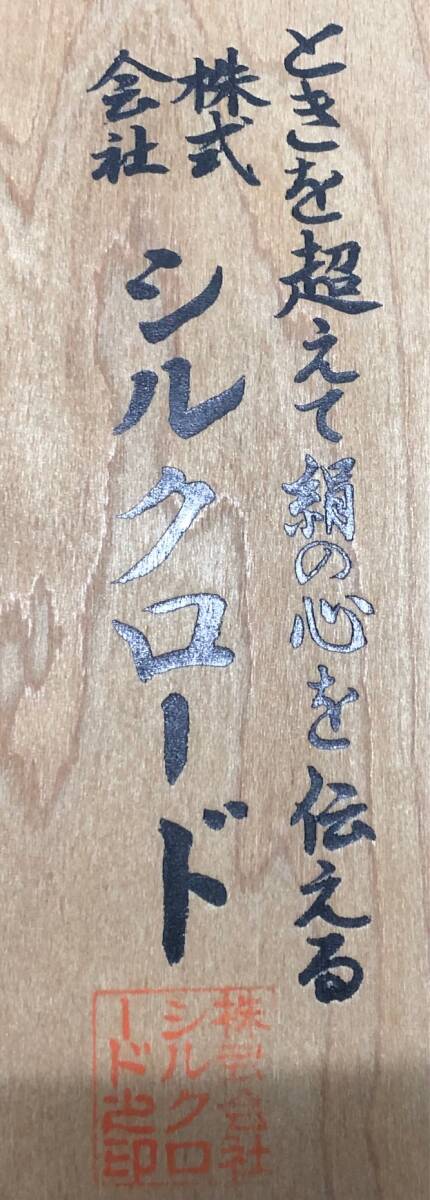 ときを超えて絹の心を伝える
株式
会社
シルクロード
株式会社
シルクロ
ード之印